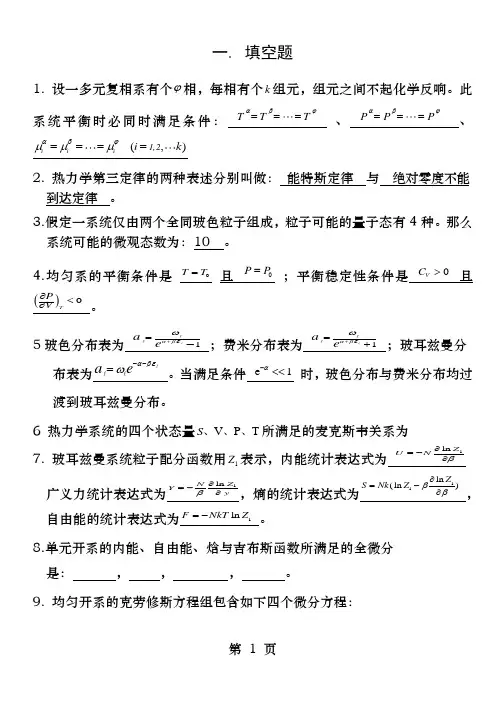 一. 填空题
1. 设一多元复相系有个φ相，每相有个k组元，组元之间不起化学反响。此
系统平衡时必同时满足条件： T^α = T^β = ⋯ = T^φ 、 P^α = P^β = ⋯ = P^φ 、
μ_i^α = μ_i^β = ⋯ = μ_i^φ (i = 1,2,⋯k)
2. 热力学第三定律的两种表述分别叫做： 能特斯定律 与 绝对零度不能
到达定律 。
3.假定一系统仅由两个全同玻色粒子组成，粒子可能的量子态有4种。那么
系统可能的微观态数为：10 。
4.均匀系的平衡条件是 T = T₀ 且 P = P₀ ；平衡稳定性条件是 C_V > 0 且
(∂P/∂V)_T < 0 。
5玻色分布表为 a_l = ω_l/(e^(α+βε_l) − 1) ；费米分布表为 a_l = ω_l/(e^(α+βε_l) + 1) ；玻耳兹曼分
布表为 a_l = ω_l e^(−α−βε_l) 。当满足条件 e^(−α) << 1 时，玻色分布与费米分布均过
渡到玻耳兹曼分布。
6 热力学系统的四个状态量S、V、P、T所满足的麦克斯韦关系为
7. 玻耳兹曼系统粒子配分函数用Z₁表示，内能统计表达式为 U = −N ∂ln Z₁/∂β
广义力统计表达式为 Y = −(N/β) ∂ln Z₁/∂y ，熵的统计表达式为 S = Nk(ln Z₁ − β ∂ln Z₁/∂β) ，
自由能的统计表达式为 F = −NkT ln Z₁ 。
8.单元开系的内能、自由能、焓与吉布斯函数所满足的全微分
是： ， ， ， 。
9. 均匀开系的克劳修斯方程组包含如下四个微分方程：
第 1 页